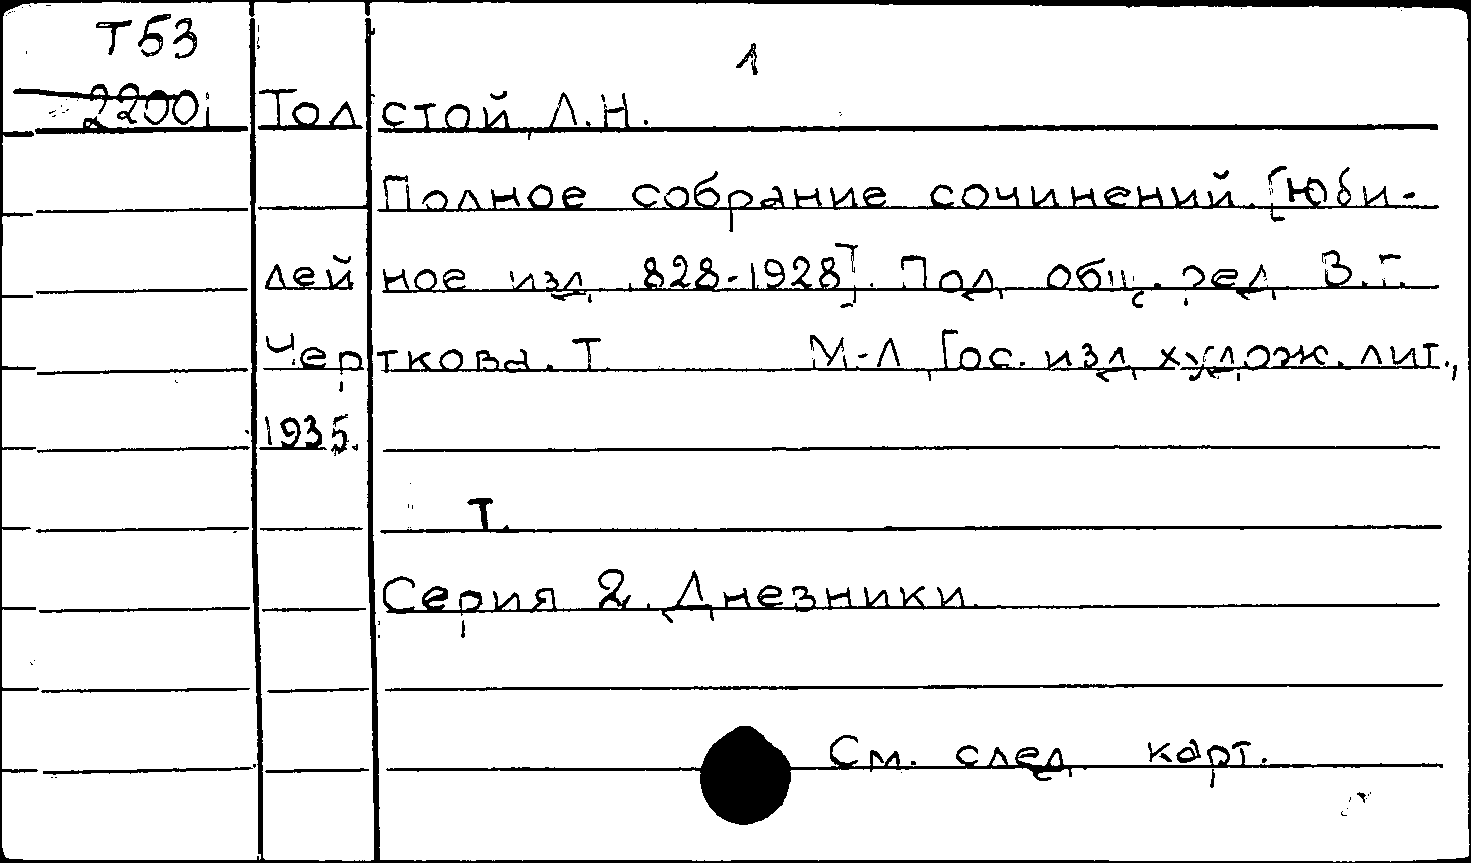 Т53
1
2200i Толстой Л.Н.
Полное собрание сочинений. [Юби-
лейное изд. 828-1928]. Под общ. ред. В.Г.
Черткова. Т М-Л Гос. изд. худож. лит.,
1935.
Т.
Серия 2. Дневники.
См. след. карт.